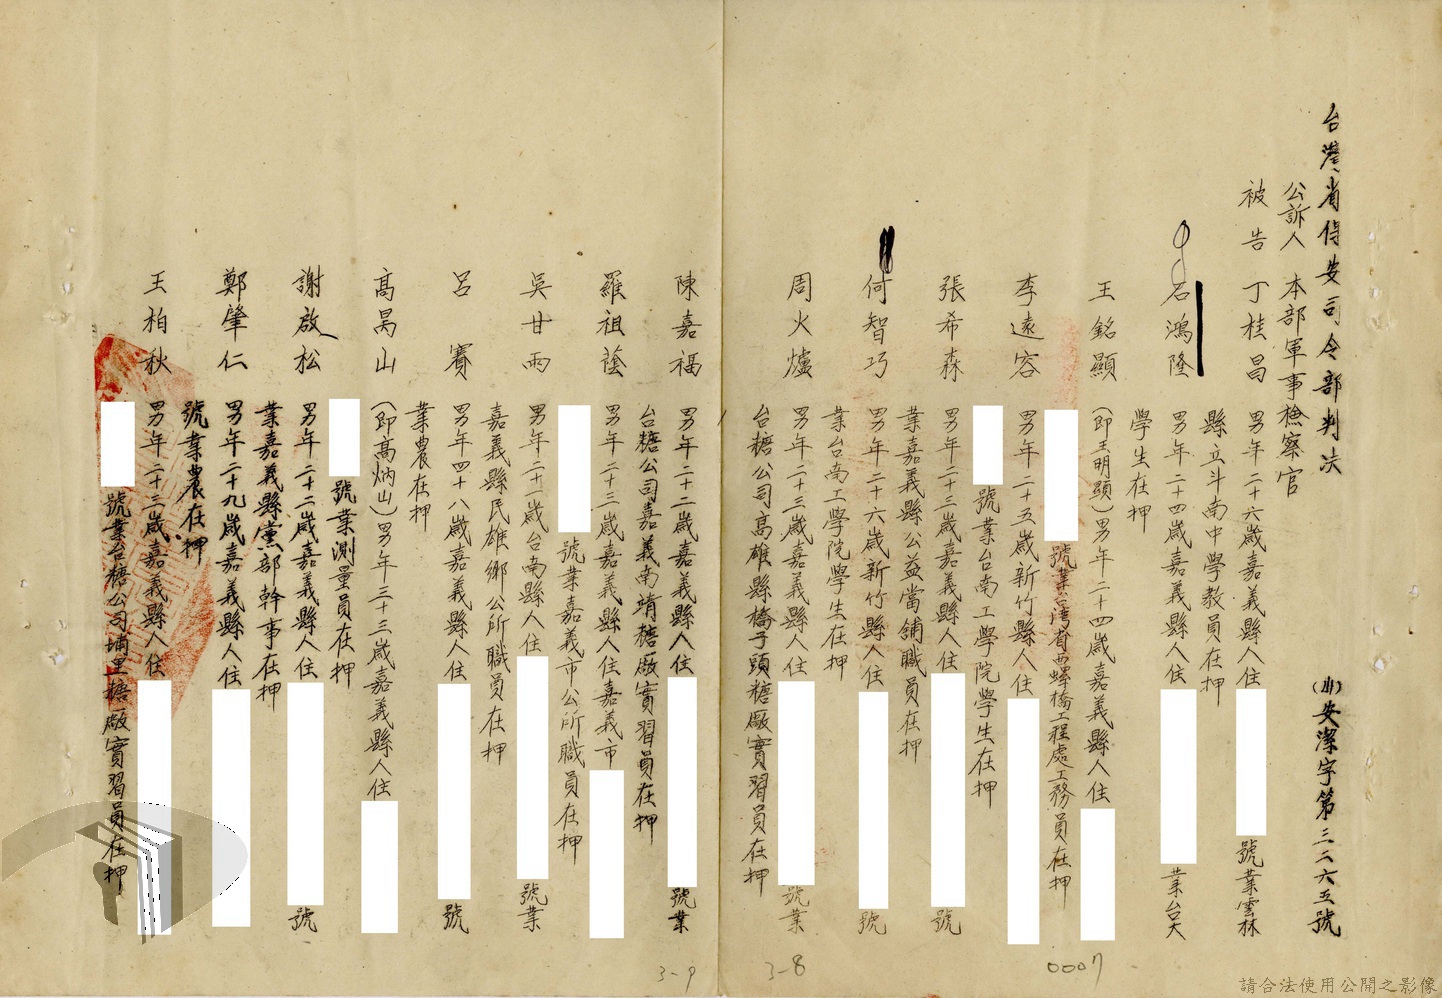 台灣省保安司令部判決
安潔字第三二六五號
公訴人 本部軍事檢察官
被告 丁桂昌 男年二十六歲嘉義縣人住 號業雲林
縣立斗南中學教員在押
石鴻隆 男年二十四歲嘉義縣人住 業台大
學生在押
王銘顯 (即王明顯)男年二十四歲嘉義縣人住
號業台灣省西螺橋工程處工務員在押
李遠容 男年二十五歲新竹縣人住
號業台南工學院學生在押
張希森 男年二十三歲嘉義縣人住 號
業嘉義縣公益當舖職員在押
何智巧 男年二十六歲新竹縣人住 號
業台南工學院學生在押
周火爐 男年二十三歲嘉義縣人住 號業
台糖公司高雄縣橋子頭糖廠實習員在押
陳嘉福 男年二十二歲嘉義縣人住 號業
台糖公司嘉義南靖糖廠實習員在押
羅祖蔭 男年二十三歲嘉義縣人住嘉義市
號業嘉義市公所職員在押
吳甘雨 男年二十一歲台南縣人住 號業
嘉義縣民雄鄉公所職員在押
呂賽 男年四十八歲嘉義縣人住 號
業農在押
高昺山 (即高炳山)男年三十三歲嘉義縣人住
號業測量員在押
謝啟松 男年二十二歲嘉義縣人住 號
業嘉義縣黨部幹事在押
鄭肇仁 男年二十九歲嘉義縣人住
號業農在押
王柏秋 男年二十三歲嘉義縣人住
號業台糖公司埔里糖廠實習員在押
0007
3-8
3-9
請合法使用公開之影像